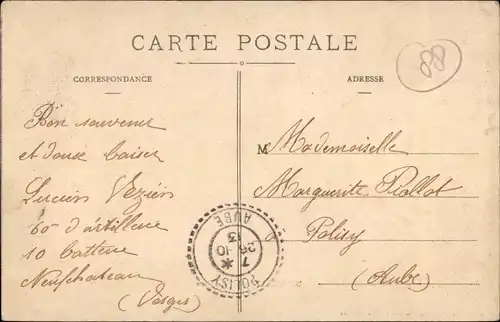 CARTE POSTALE
88
CORRESPONDANCE
ADRESSE
Bon souvenir
et douse baiser
Lucien Vezien
60e d'artillerie
10 batterie
Neufchateau
(Vosges)
M Mademoiselle
Marguerite Piollot
Polisy
(Aube)
POLISY
AUBE
7
25-10
13